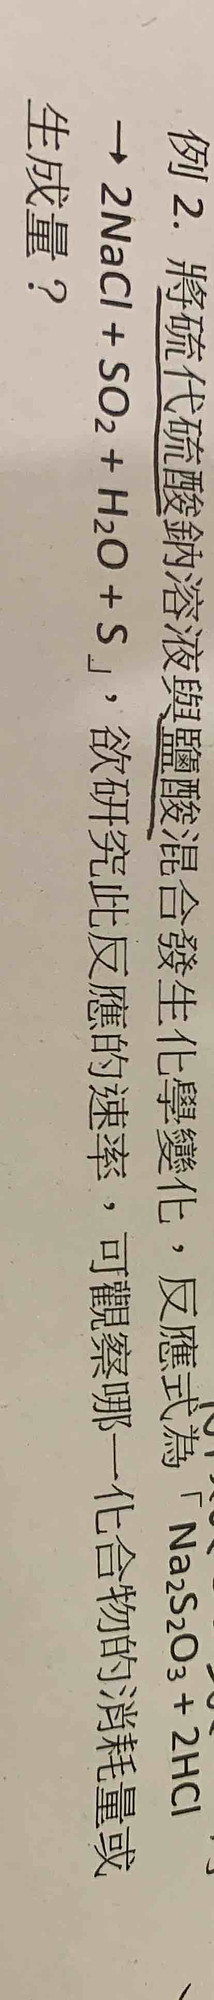 例 2. 將硫代硫酸鈉溶液與鹽酸混合發生化學變化，反應式為「Na₂S₂O₃ + 2HCl
→ 2NaCl + SO₂ + H₂O + S」，欲研究此反應的速率，可觀察哪一化合物的消耗量或
生成量？